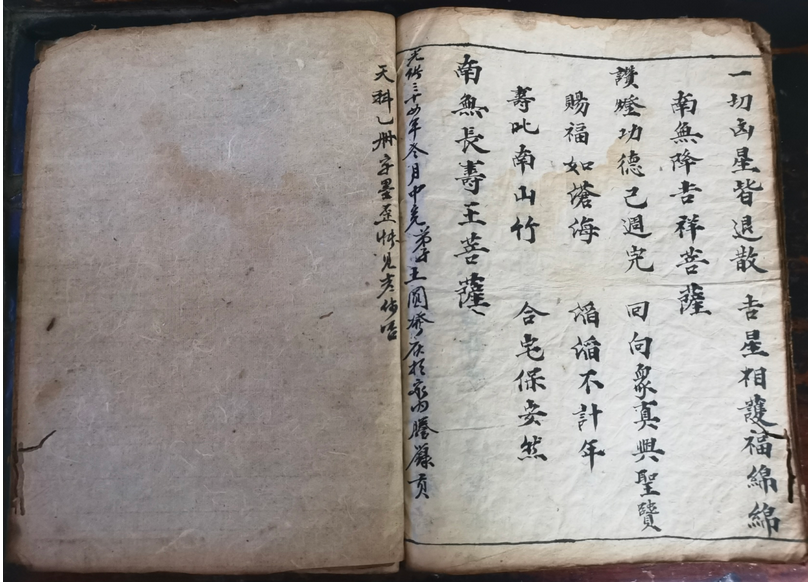 一切凶星皆退散 吉星相護福綿綿
南無降吉祥菩薩
讚燈功德己週完 回向衆真與聖贒
賜福如滄海 滔滔不計年
壽比南山竹 合宅保安然
南無長壽王菩薩
光緒三十四年冬月中完 弟子王圓 於家內謄錄
天科乚册字墨歪 見